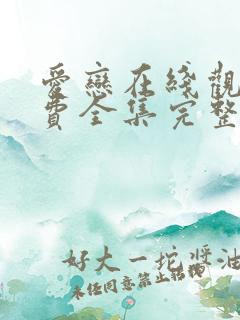 愛戀在綫觀
費全集完整
好大一坨醬油
未經同意禁止轉載